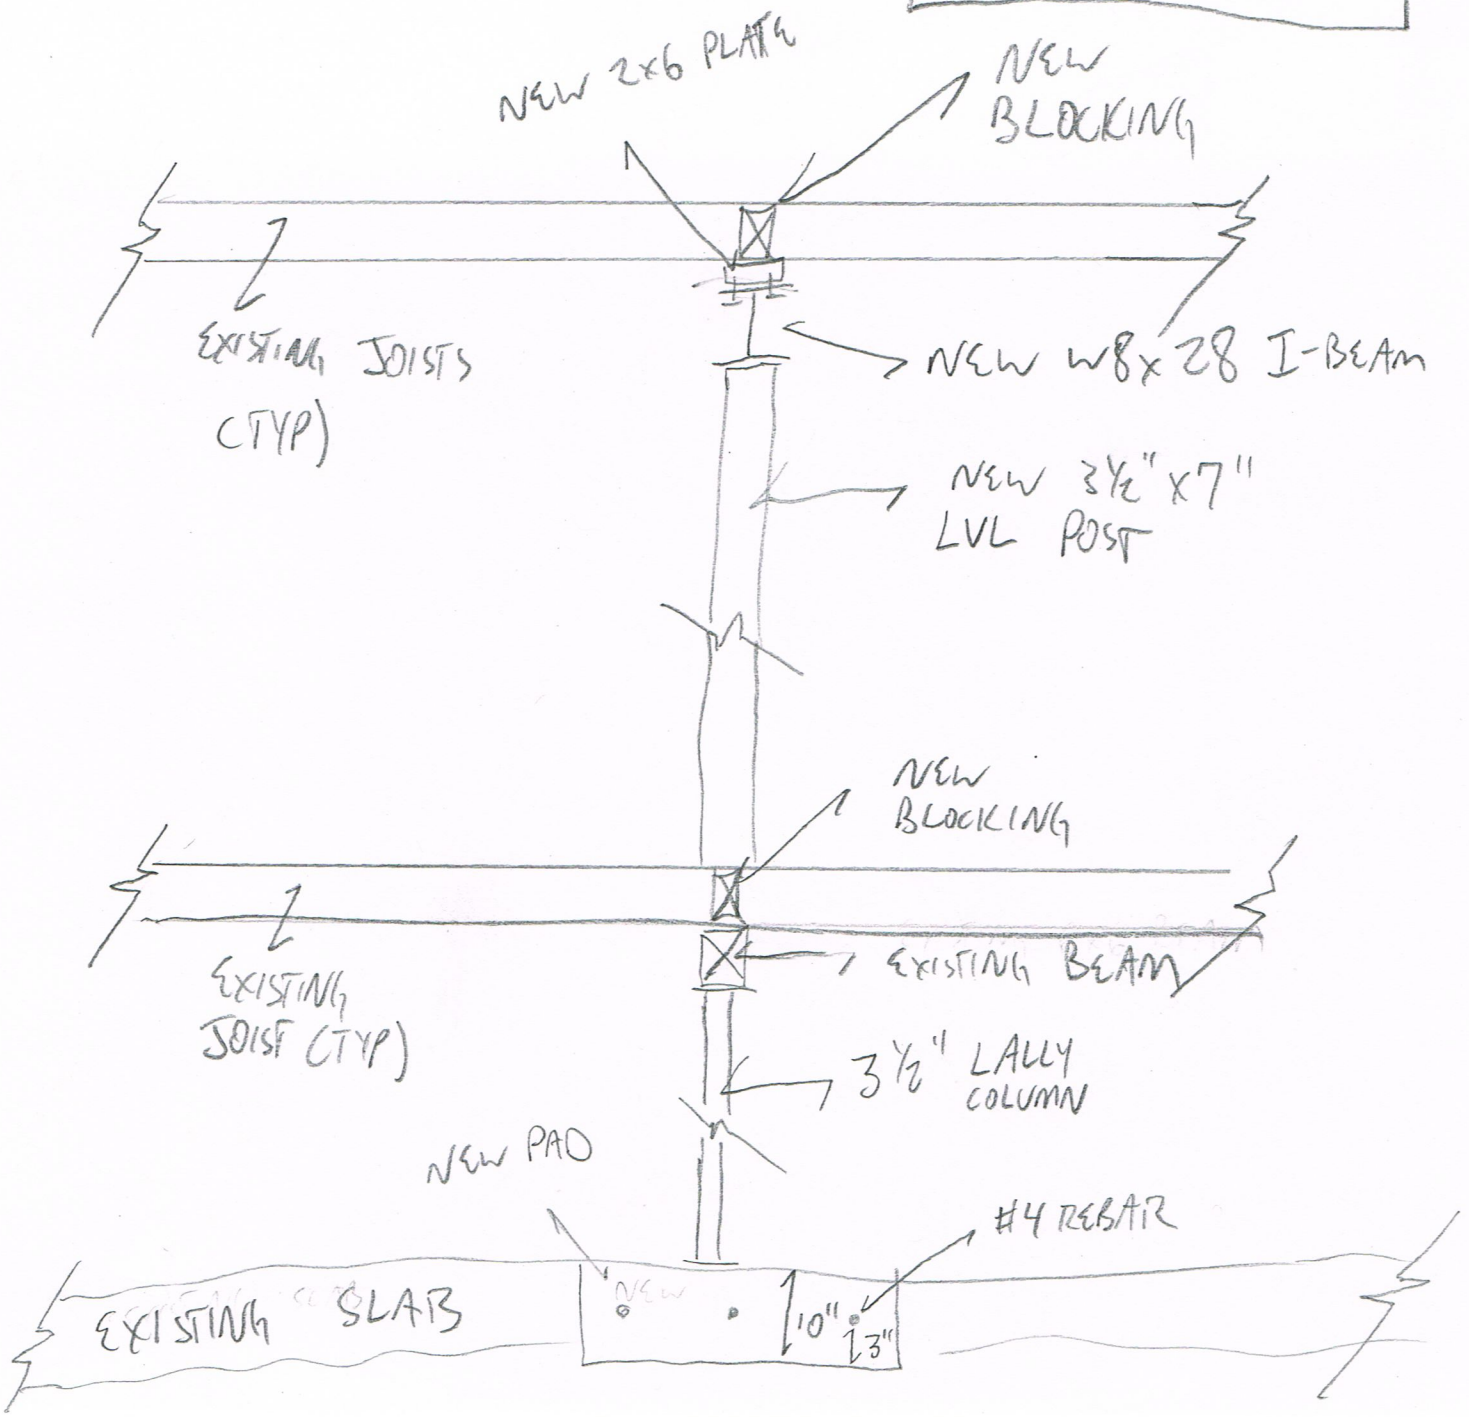 NEW 2x6 PLATE
NEW
BLOCKING
EXISTING JOISTS
(TYP)
NEW W8x28 I-BEAM
NEW 3½"x7"
LVL POST
NEW
BLOCKING
EXISTING
JOIST (TYP)
EXISTING BEAM
3½" LALLY
COLUMN
NEW PAD
#4 REBAR
EXISTING SLAB
NEW
10"
3"